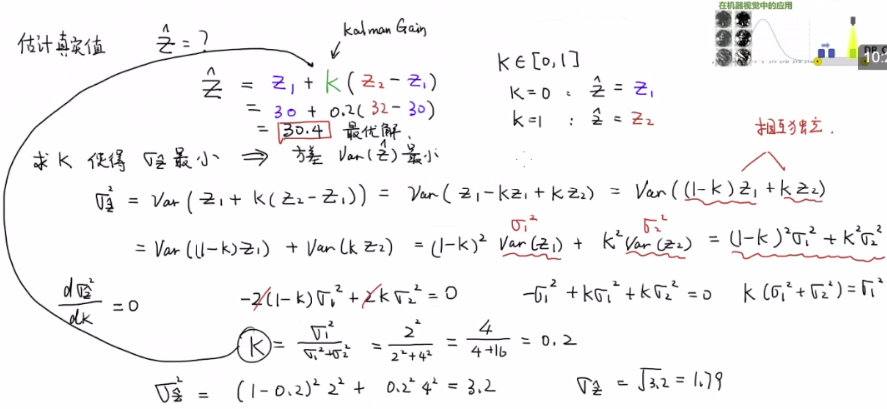 在机器视觉中的应用
kalman Gain
估计真实值 ẑ = ?
10:2
ẑ = z₁ + k ( z₂ - z₁ )
= 30 + 0.2( 32 - 30 )
= 30.4 最优解.
k ∈ [0,1]
k=0 : ẑ = z₁
k=1 : ẑ = z₂
相互独立.
求 k 使得 σẑ 最小 ⇒ 方差 Var(ẑ) 最小
σẑ² = Var( z₁ + k( z₂ - z₁ ) ) = Var( z₁ - kz₁ + kz₂ ) = Var( (1-k) z₁ + k z₂ )
σ₁² σ₂²
= Var((1-k)z₁) + Var(k z₂) = (1-k)² Var(z₁) + k² Var(z₂) = (1-k)²σ₁² + k²σ₂²
dσẑ²/dk = 0 -2(1-k)σ₁² + 2kσ₂² = 0 -σ₁² + kσ₁² + kσ₂² = 0 k(σ₁² + σ₂²) = σ₁²
k = σ₁²/(σ₁²+σ₂²) = 2²/(2²+4²) = 4/(4+16) = 0.2
σẑ² = (1-0.2)² 2² + 0.2² 4² = 3.2 σẑ = √3.2 = 1.79